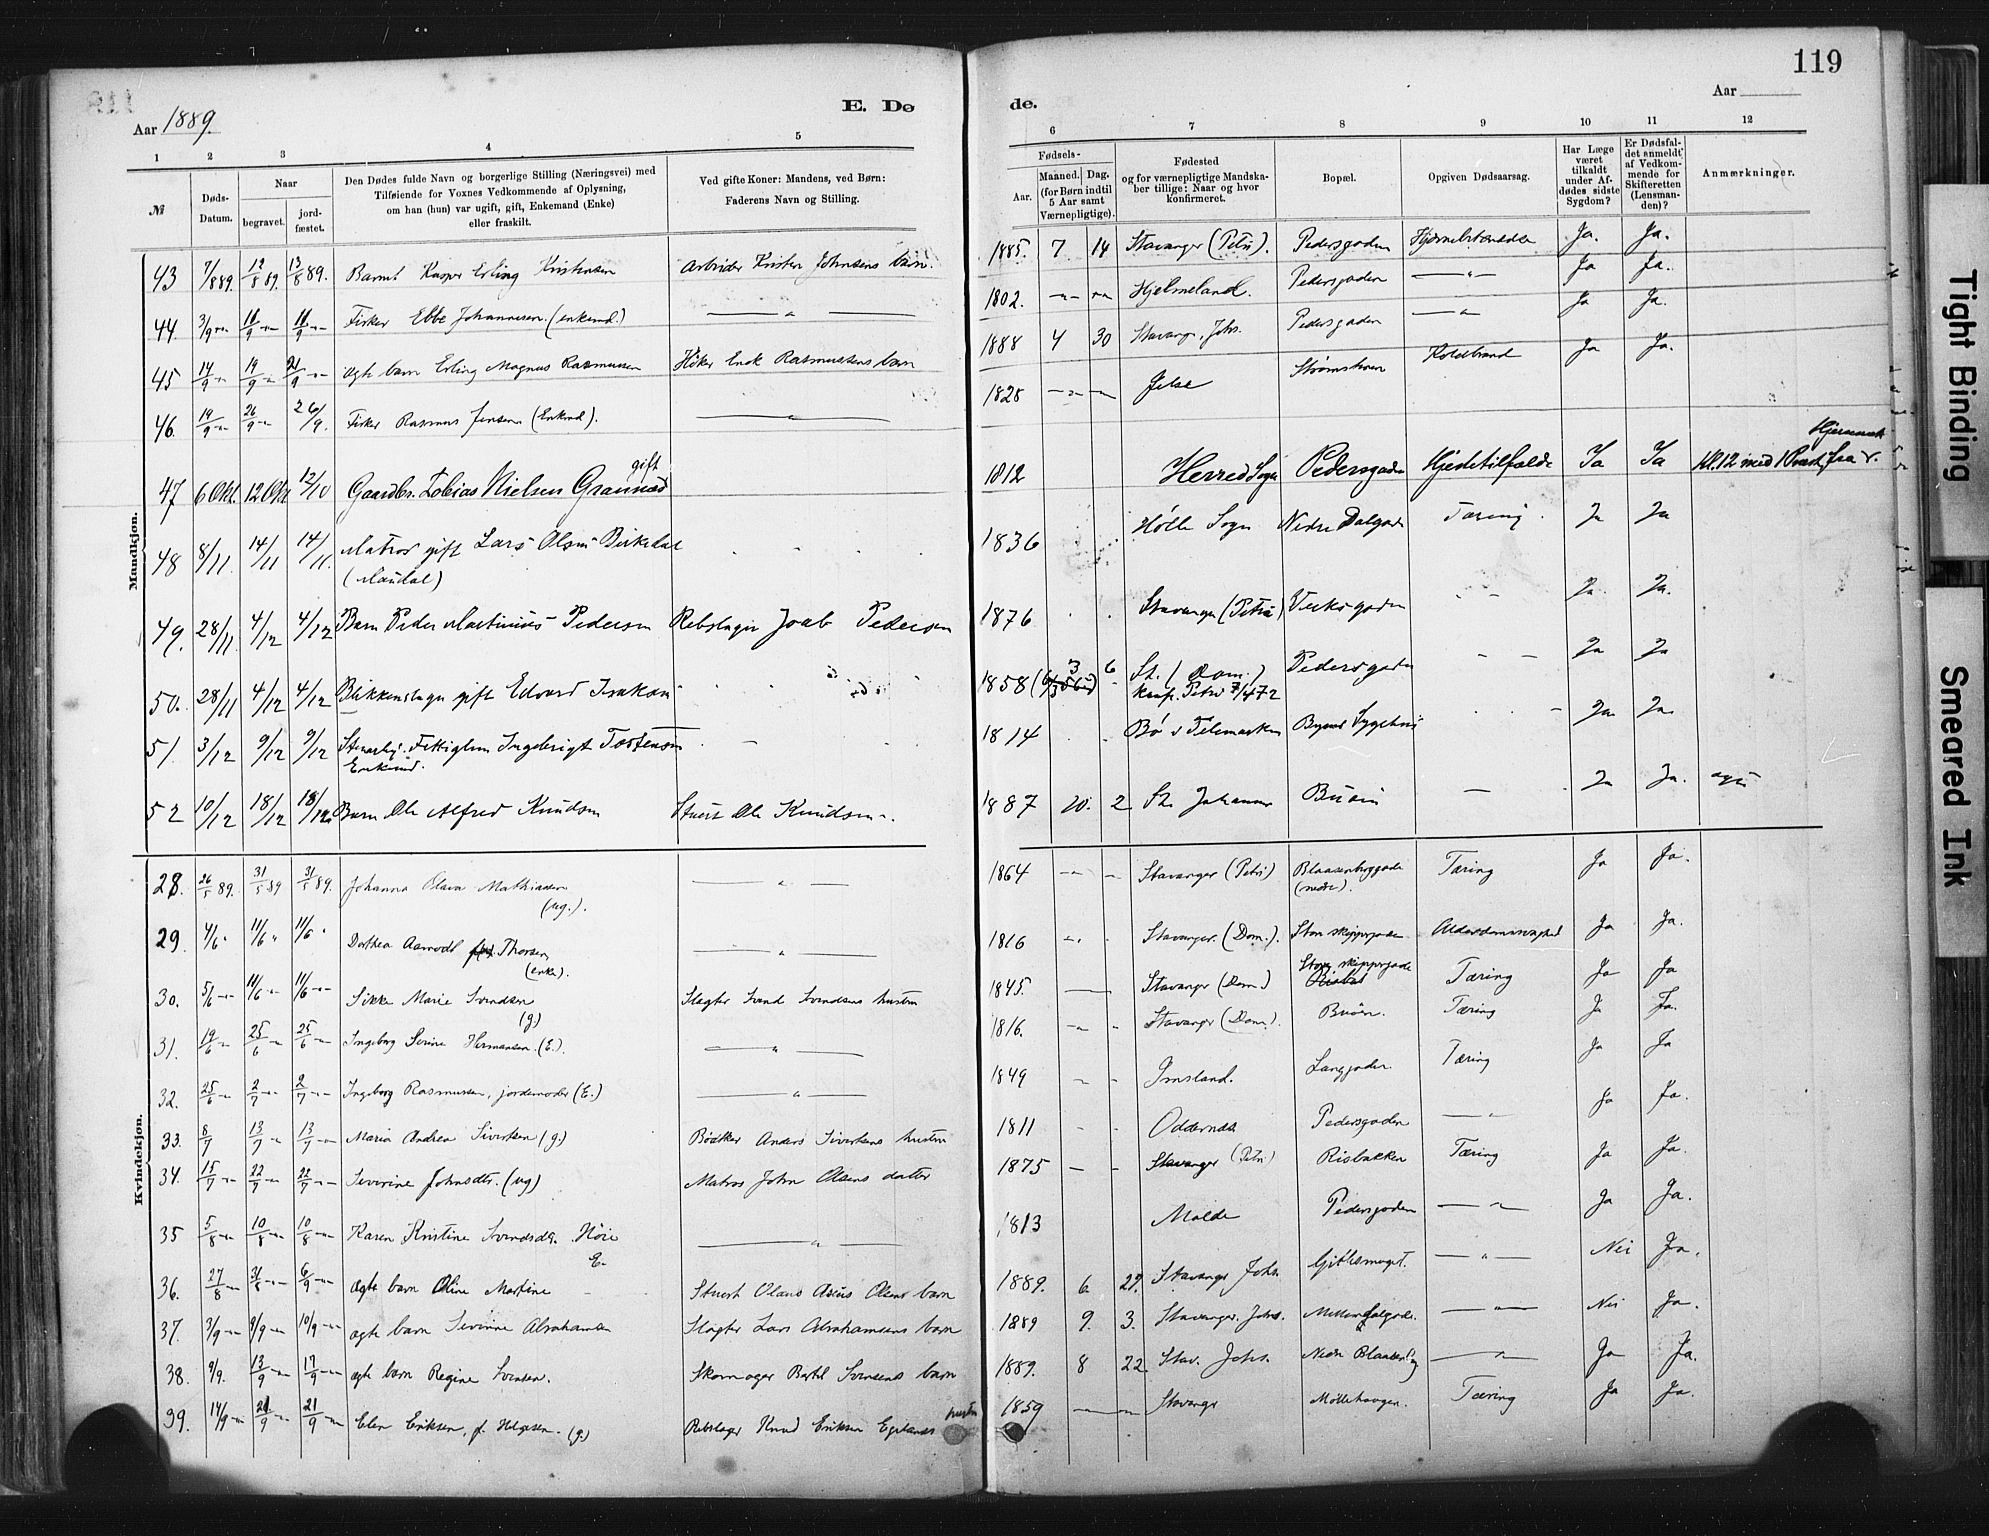 119
Aar 1889.
E. Dø
de.
Aar
1 2 3 4 5
6 7 8 9 10 11 12
№
Døds-
Datum.
Naar
begravet.
jord-
fæstet.
Den Dødes fulde Navn og borgerlige Stilling (Næringsvei) med
Tilføiende for Voxnes Vedkommende af Oplysning,
om han (hun) var ugift, gift, Enkemand (Enke)
eller fraskilt.
Ved gifte Koner: Mandens, ved Børn:
Faderens Navn og Stilling.
Fødsels-
Aar.
Maaned. Dag.
(for Børn indtil
5 Aar samt
Værnepligtige).
Fødested
og for værnepligtige Mandska-
ber tillige: Naar og hvor
konfirmeret.
Bopæl.
Opgiven Dødsaarsag.
Har Læge
været
tilkaldt
under Af-
dødes sidste
Sygdom?
Er Dødsfal-
det anmeldt
af Vedkom-
mende for
Skifteretten
(Lensman-
den)?
Anmærkninger.
Mandkjøn.
43 7/8 89. 12/8 89. 13/8 89. Barnet Kasper Erling Kristensen Arbeider Kristen Johnsens barn. 1885. 7 14 Stavanger (Petri). Pedersgaden Ja. Ja.
44 3/9 Fisker Ebbe Johannesen (enkemd.) 1802. Hjelmeland. Pedersgaden Ja Ja.
45 14/9 19/9 21/9 ægte barn Erling Magnus Rasmussen Høker Enok Rasmussens barn 1888 4 30 Stavanger, Johs. Pedersgaden Ja Ja.
46. 19/9 26/9 26/9. Fisker Rasmus Jensen (Enkmd). 1828 Jelse Strømsteen Koldbrand Ja Ja.
47 6 Okt. 12 Okt 12/10 Gaardbr. Tobias Nielsen Grannæs gift 1812 Herred Sogn Pedersgaden Hjertetilfælde Ja Ja
48 8/11 14/11 14/11. Matros gift Lars Olsen Birkedal
(Maudal) 1836 Hølle Sogn Nedre Dalgade Tæring Ja Ja
49. 28/11 4/12 4/12 Barn Peder Martinius Pedersen Rebslager Joab Pedersen 1876 Stavanger (Petri) Verksgaden Ja. Ja.
50. 28/11 4/12 4/12 Blikkenslager gift Edvard Isaksen 1858 3 6 St. (Dom.)
Konf. Petri 7/4 72 Pedersgaden Ja Ja
51. 3/12 9/12 9/12 Fattiglem Ingebrigt Torstensen
Enkemd. 1814 Bø i Telemarken Byens Sygehus Ja Ja.
52 10/12 18/12 18/12 Barn Ole Alfred Knudsen Stuert Ole Knudsen 1887 10. 2 St. Johannes Buøen Ja Ja.
Kvindekjøn.
28. 26/5 89. 31/5 89 31/5 89. Johanna Olava Mathiasen
(ug.). 1864 Stavanger (Petri) Blaasenborggade
(nedre). Tæring Ja Ja.
29. 4/6 11/6 11/6 Dorthea Aamodt Thorsen
(enke). 1816 Stavanger. (Dom.). Store skippergaden Alderdomssvaghed Ja Ja.
30. 5/6 11/6 11/6 Sikke Marie Svendsen
(g) Slagter Svend Svendsens hustru 1845. Stavanger (Dom.) Store skippergade Tæring Ja Ja
31. 19/6 25/6 25/6 Ingeborg Serine Hermansen. (E.). 1816. Stavanger (Dom.). Buøen. Tæring Ja Ja.
32. 25/6 2/7 2/7 Ingeborg Rasmussen, jordemoder (E.) 1849 Imsland. Langgaden. Tæring Ja Ja
33. 8/7 13/7 13/7 Maria Andrea Sivertsen (g.) Bødker Anders Sivertsens hustru 1811 Oddernæs Pedersgaden Ja Ja.
34. 15/7 22/7 22/7 Severine Johnsdtr. (ug) Matros John Olsens datter 1875 Stavanger (Petri) Risbakken Tæring Ja Ja.
35 5/8 10/8 10/8 Karen Kristine Svendsdtr. Høie
E. 1813 Molde Pedersgaden Ja Ja.
36. 27/8 31/8 6/9 ægte barn Oline Martine Stuert Olaus Asius Olsens barn 1889. 6 29. Stavanger Johs. Gjiblesmuget. Nei Ja.
37. 3/9 9/9 10/9 ægte barn Severine Abrahamsen Slagter Lars Abrahamsens barn 1889 9. 3. Stavanger. Johs. Mellemdalgade. Nei Ja.
38. 9/9. 13/9 17/9 ægte barn Regine Svensen. Skomager Bertel Svensens barn 1889. 8 22 Stav. Johs. Nedre Blaasenbg Ja Ja.
39. 14/9 21/9 21/9 Elen Eriksen, f. Helgesen. (g.) Rebslager Knud Eriksen Egelands hustru 1859 Stavanger Møllehaugen. Tæring Ja Ja.
Tight Binding
Smeared Ink